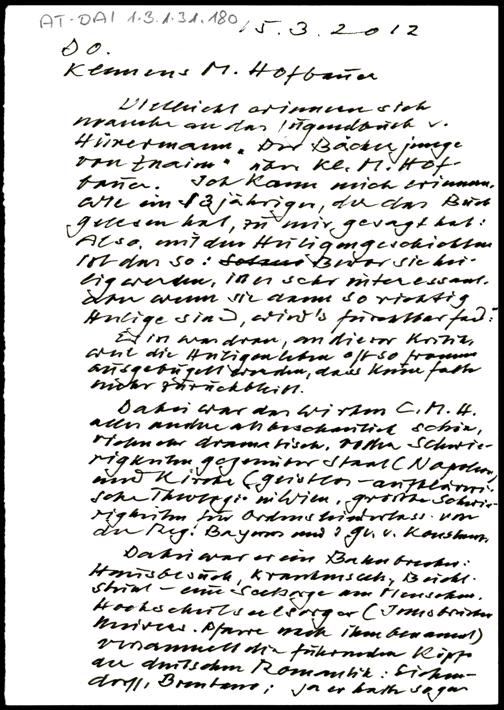 AT-DAI 1.3.1.31.180
15.3.2012
Do.
Klemens M. Hofbauer
Vielleicht erinnern sich
manche an das Jugendbuch v.
Hünermann „Der Bäckerjunge
von Znaim" über Kl. M. Hof-
bauer. Ich kann mich erinnern,
wie ein 13jähriger, der das Buch
gelesen hat, zu mir gesagt hat:
Also, mit den Heiligengeschichten
ist das so: Bevor sie hei-
lig werden, ist es sehr interessant.
Aber wenn sie dann so richtig
Heilige sind, wird's furchtbar fad!
Es ist was dran, an dieser Kritik,
weil die Heiligenleben oft so fromm
ausgebügelt werden, dass keine Falte
mehr zurückbleibt.
Dabei war das Wirken C. M. H.
alles andere als beschaulich schön,
vielmehr dramatisch, voller Schwie-
rigkeiten gegenüber Staat (Napoleon)
und Kirche (geistlos-aufkläreri-
sche Theologie in Wien, größte Schwie-
rigkeiten für Ordensniederlass. von
der Reg. Bayerns und GV. v. Konstanz.
Dabei war er ein Bahnbrecher:
Hausbesuch, Krankenseels, Beicht-
stuhl - eine Seelsorge am Menschen.
Hochschulseelsorger (Innsbrucker
Univers. Pfarre nach ihm benannt)
versammelt die führenden Köpfe
der deutschen Romantik: Eichen-
dorff, Brentano; ja er hatte sogar